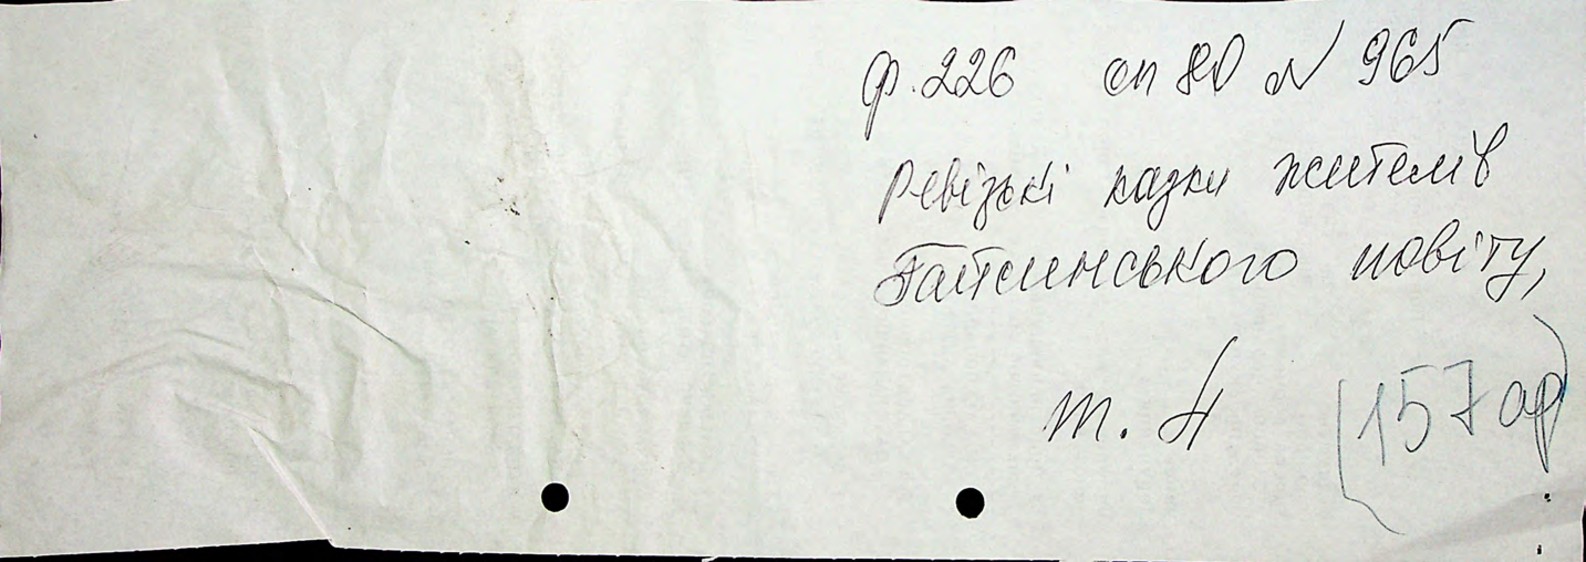 ф.226 оп 80 N 965
Ревізькі казки жителів
Гайсинського повіту,
т. 4
(157 ар)